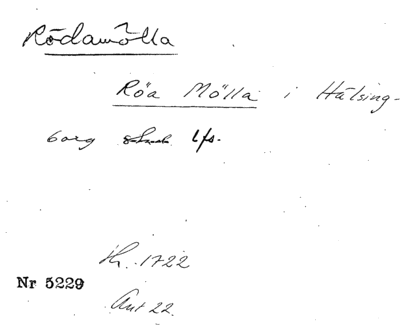 Rödamölla
Röa Mölla i Hälsing-
borg lfs.
Nr 5229
1722
Ant 22.